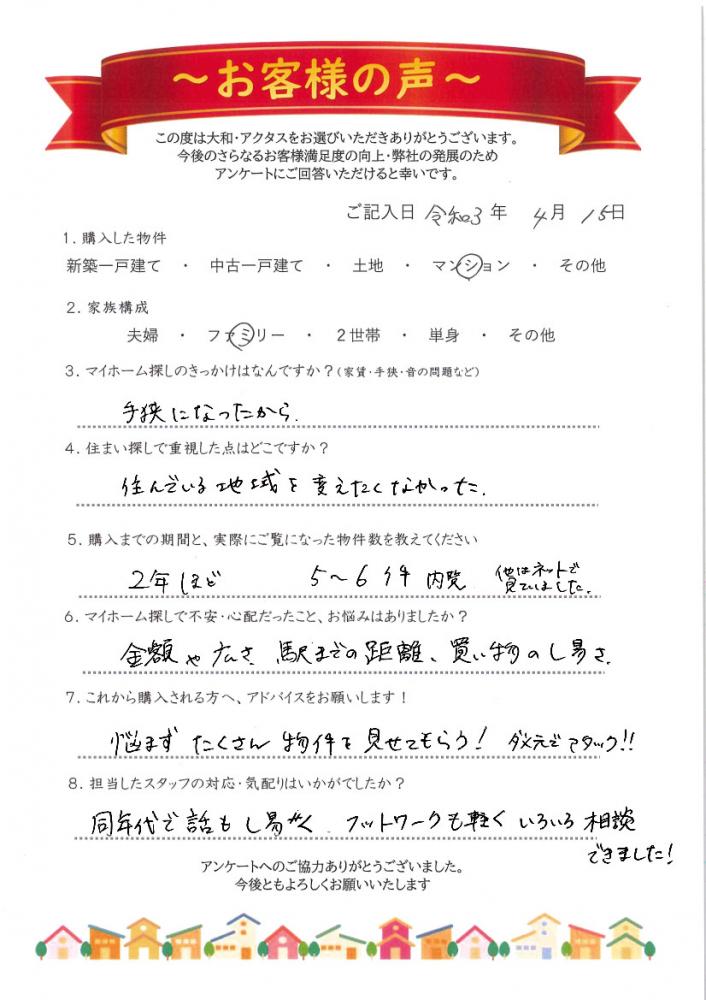 ～お客様の声～
この度は大和・アクタスをお選びいただきありがとうございます。
今後のさらなるお客様満足度の向上・弊社の発展のため
アンケートにご回答いただけると幸いです。
ご記入日 令和3年 4月 15日
1. 購入した物件
新築一戸建て ・ 中古一戸建て ・ 土地 ・ マンション ・ その他
2. 家族構成
夫婦 ・ ファミリー ・ 2世帯 ・ 単身 ・ その他
3. マイホーム探しのきっかけはなんですか？（家賃・手狭・音の問題など）
手狭になったから.
4. 住まい探しで重視した点はどこですか？
住んでいる地域を変えたくなかった.
5. 購入までの期間と、実際にご覧になった物件数を教えてください
2年ほど 5～6件 内覧 他はネットで
見ていました.
6. マイホーム探しで不安・心配だったこと、お悩みはありましたか？
金額や広さ 駅までの距離、買い物のし易さ.
7. これから購入される方へ、アドバイスをお願いします！
悩まず たくさん 物件を見せてもらう! ダメ元でアタック!!
8. 担当したスタッフの対応・気配りはいかがでしたか？
同年代で話もし易く フットワークも軽く いろいろ相談
できました!
アンケートへのご協力ありがとうございました。
今後ともよろしくお願いいたします